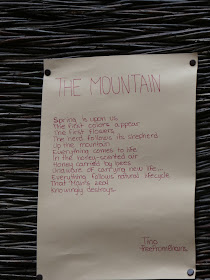 THE MOUNTAIN
Spring is upon us
The first colors appear
The first flowers
The herd follows its shepherd
Up the mountain
Everything comes to life
In the honey-scented air
Honey carried by bees
Unaware of carrying new life...
Everything follows natural lifecycle
That Man's
Knowingly destroys.
Tina